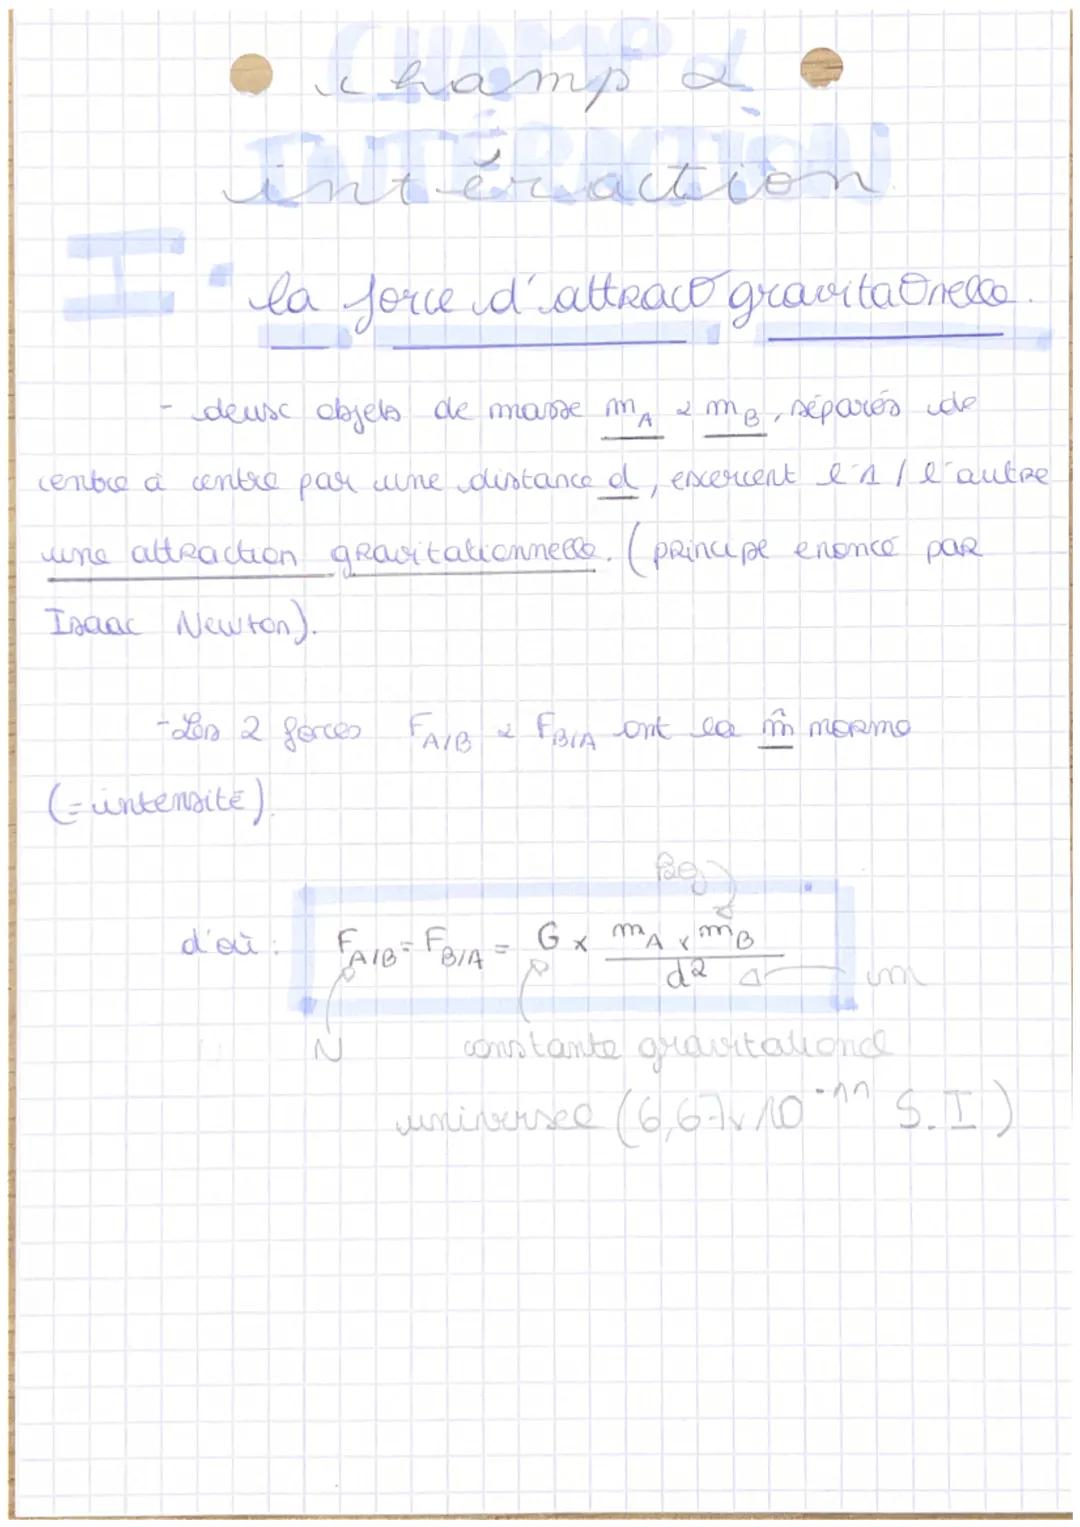 CHAMP &
champ &
INTÉRACTION
intéraction
I. la force d'attract° gravita°nelle.
- deux objets de masse mA & mB, séparés de
centre à centre par une distance d, excercent l'1 / l'autre
une attraction gravitationnelle. (principe enoncé par
Isaac Newton).
- Les 2 forces FA/B & FB/A ont la m̂ norme
(= intensité).
kg
d'où : FA/B = FB/A = G x mA x mB
d²
m
N
constante gravitationel
universel (6,67x10⁻¹¹ S.I)